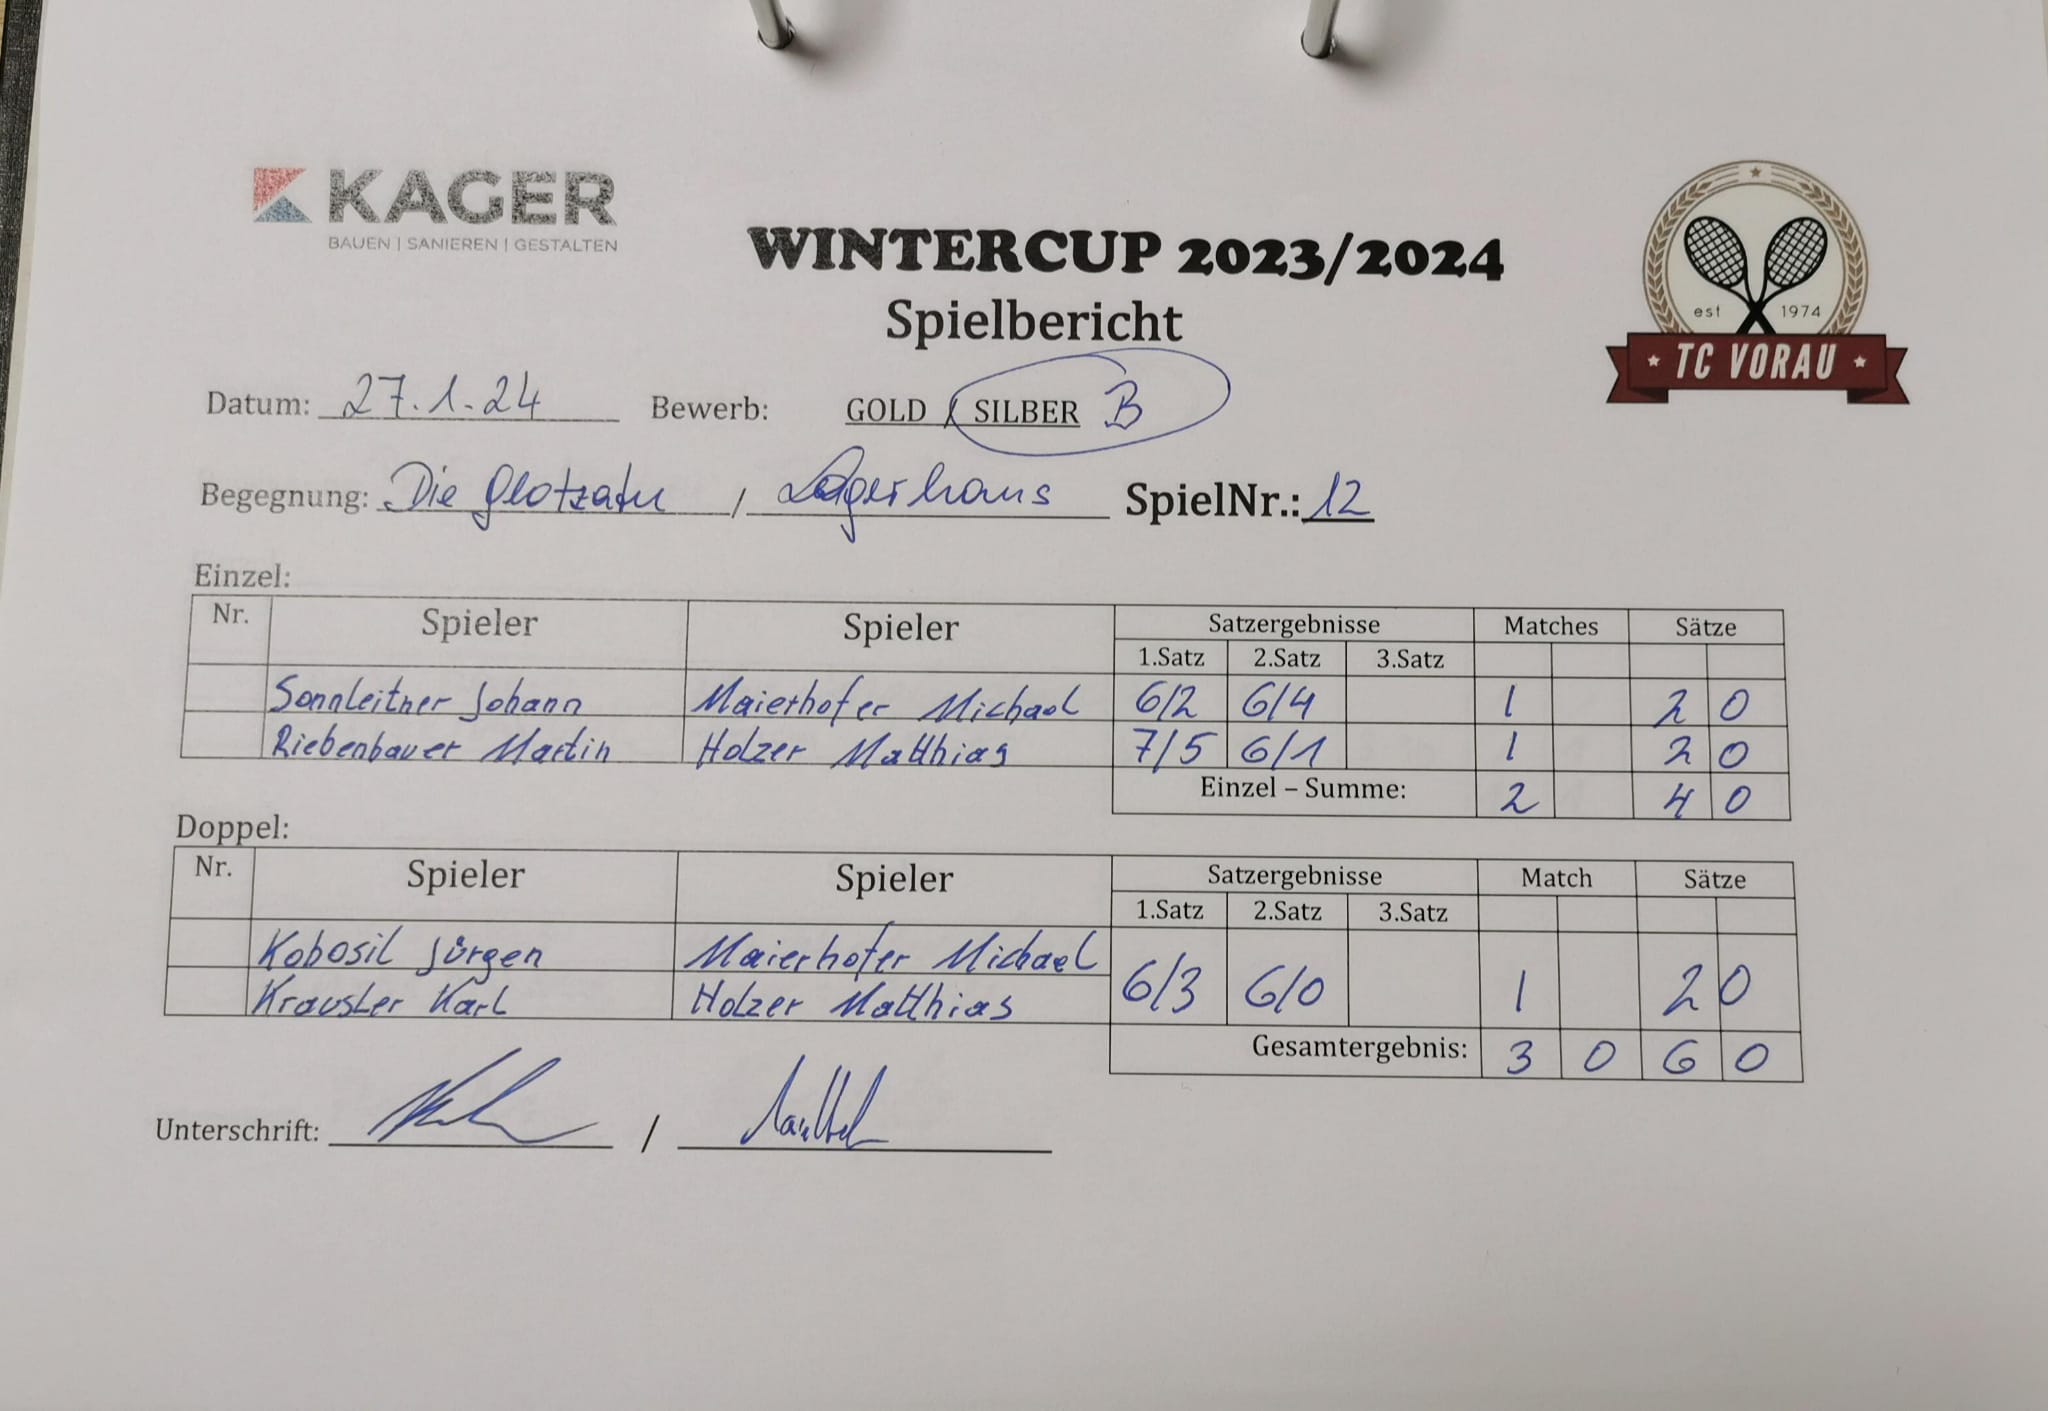 KAGER
BAUEN | SANIEREN | GESTALTEN
WINTERCUP 2023/2024
Spielbericht
est 1974
TC VORAU
Datum: 27.1.24 Bewerb: GOLD / SILBER B
Begegnung: Die / Lagerhaus SpielNr.: 12
Einzel:
Nr. Spieler Spieler Satzergebnisse Matches Sätze
1.Satz 2.Satz 3.Satz
Sonnleitner Johann Maierhofer Michael 6/2 6/4 1 2 0
Riebenbauer Martin Holzer Matthias 7/5 6/1 1 2 0
Einzel – Summe: 2 4 0
Doppel:
Nr. Spieler Spieler Satzergebnisse Match Sätze
1.Satz 2.Satz 3.Satz
Kobosil Jürgen Maierhofer Michael
Krausler Karl Holzer Matthias 6/3 6/0 1 2 0
Gesamtergebnis: 3 0 6 0
Unterschrift: /